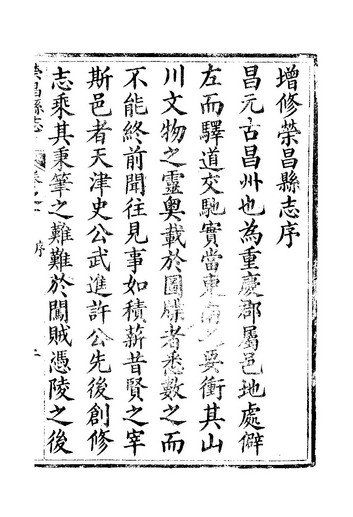 增修榮昌縣志序
昌元古昌州也為重慶郡屬邑地處僻
左而驛道交馳實當東南之要衝其山
川文物之靈奧載於圖牒者悉數之而
不能終前聞往見事如積薪昔賢之宰
斯邑者天津史公武進許公先後創修
志乘其秉筆之難難於闖賊憑陵之後
榮昌縣志
序